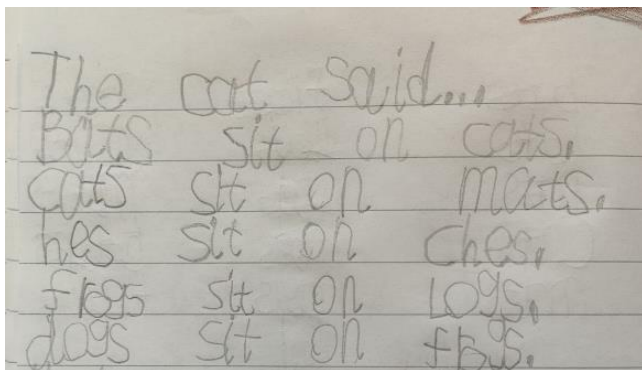 The cat said...
Bats sit on cats.
cats sit on mats.
hes sit on Ches.
frogs sit on Logs.
dogs sit on frogs.